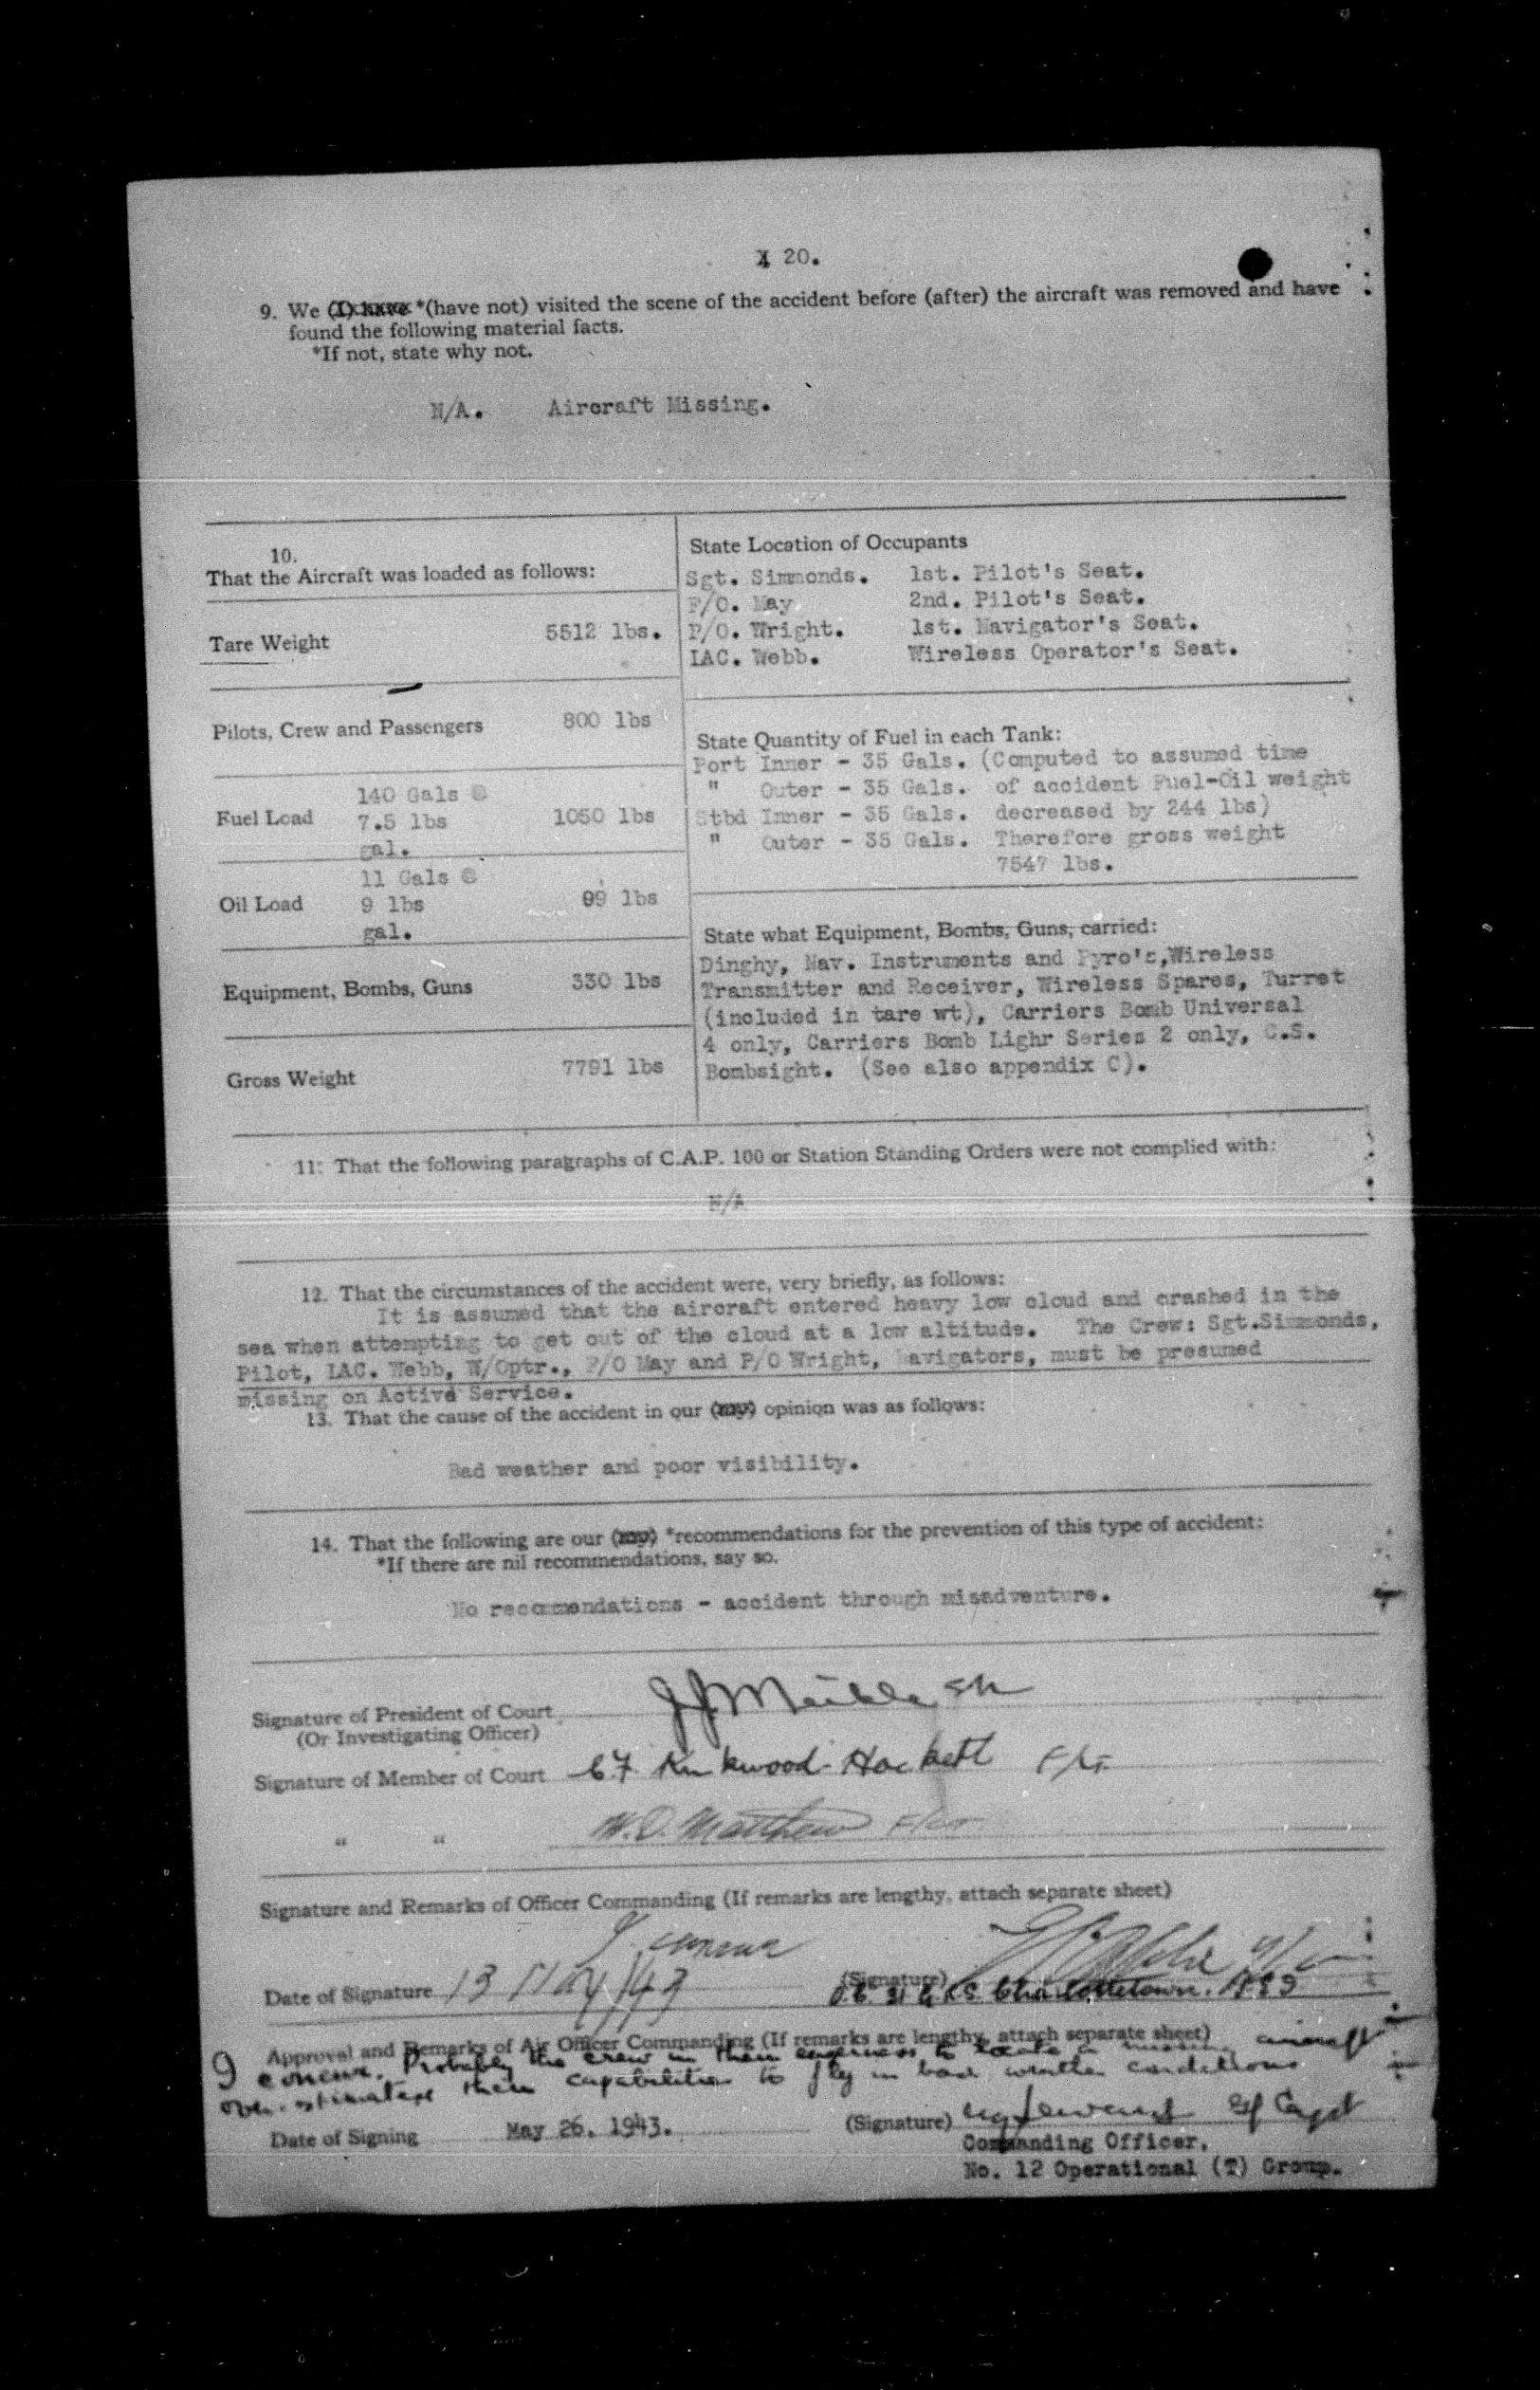 20.
9. We (I) have *(have not) visited the scene of the accident before (after) the aircraft was removed and have
found the following material facts.
*If not, state why not.
N/A. Aircraft Missing.
10.
That the Aircraft was loaded as follows:
Tare Weight 5512 lbs.
Pilots, Crew and Passengers 800 lbs
Fuel Load 140 Gals @
7.5 lbs 1050 lbs
gal.
Oil Load 11 Gals @
9 lbs 99 lbs
gal.
Equipment, Bombs, Guns 330 lbs
Gross Weight 7791 lbs
State Location of Occupants
Sgt. Simmonds. 1st. Pilot's Seat.
P/O. May 2nd. Pilot's Seat.
P/O. Wright. 1st. Navigator's Seat.
LAC. Webb. Wireless Operator's Seat.
State Quantity of Fuel in each Tank:
Port Inner - 35 Gals. (Computed to assumed time
" Outer - 35 Gals. of accident Fuel-Oil weight
Stbd Inner - 35 Gals. decreased by 244 lbs)
" Outer - 35 Gals. Therefore gross weight
7547 lbs.
State what Equipment, Bombs, Guns, carried:
Dinghy, Nav. Instruments and Pyro's,Wireless
Transmitter and Receiver, Wireless Spares, Turret
(included in tare wt), Carriers Bomb Universal
4 only, Carriers Bomb Lighr Series 2 only, C.S.
Bombsight. (See also appendix C).
11. That the following paragraphs of C.A.P. 100 or Station Standing Orders were not complied with:
N/A
12. That the circumstances of the accident were, very briefly, as follows:
It is assumed that the aircraft entered heavy low cloud and crashed in the
sea when attempting to get out of the cloud at a low altitude. The Crew: Sgt.Simmonds,
Pilot, LAC. Webb, W/Optr., P/O May and P/O Wright, Navigators, must be presumed
missing on Active Service.
13. That the cause of the accident in our (my) opinion was as follows:
Bad weather and poor visibility.
14. That the following are our (my) *recommendations for the prevention of this type of accident:
*If there are nil recommendations, say so.
No recommendations - accident through misadventure.
Signature of President of Court
(Or Investigating Officer)
Signature of Member of Court Kirkwood-Hackett F/Lt
" " W.D. Matthew F/Lt
Signature and Remarks of Officer Commanding (If remarks are lengthy, attach separate sheet)
I concur
Date of Signature 13 May/43 (Signature)
Charlottetown.
Approval and Remarks of Air Officer Commanding (If remarks are lengthy, attach separate sheet)
I concur. Probably the crew in their eagerness to locate a missing aircraft
over-estimated their capabilities to fly in bad weather conditions
Date of Signing May 26. 1943. (Signature) Gp Capt
Commanding Officer,
No. 12 Operational (T) Group.